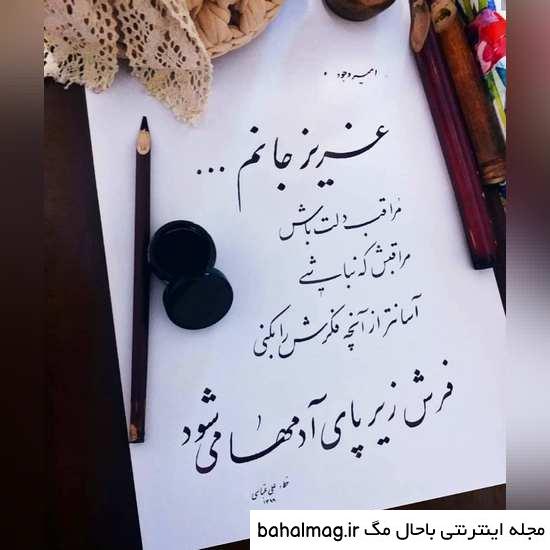 امیر وجود
عزیز جانم ...
مراقب دلت باش
مراقبش که نباشی
آسانتر از آنچه فکرش را بکنی
فرش زیر پای آدمها می شود
خط: علی عباسی
۱۳۹۹
مجله اینترنتی باحال مگ bahalmag.ir